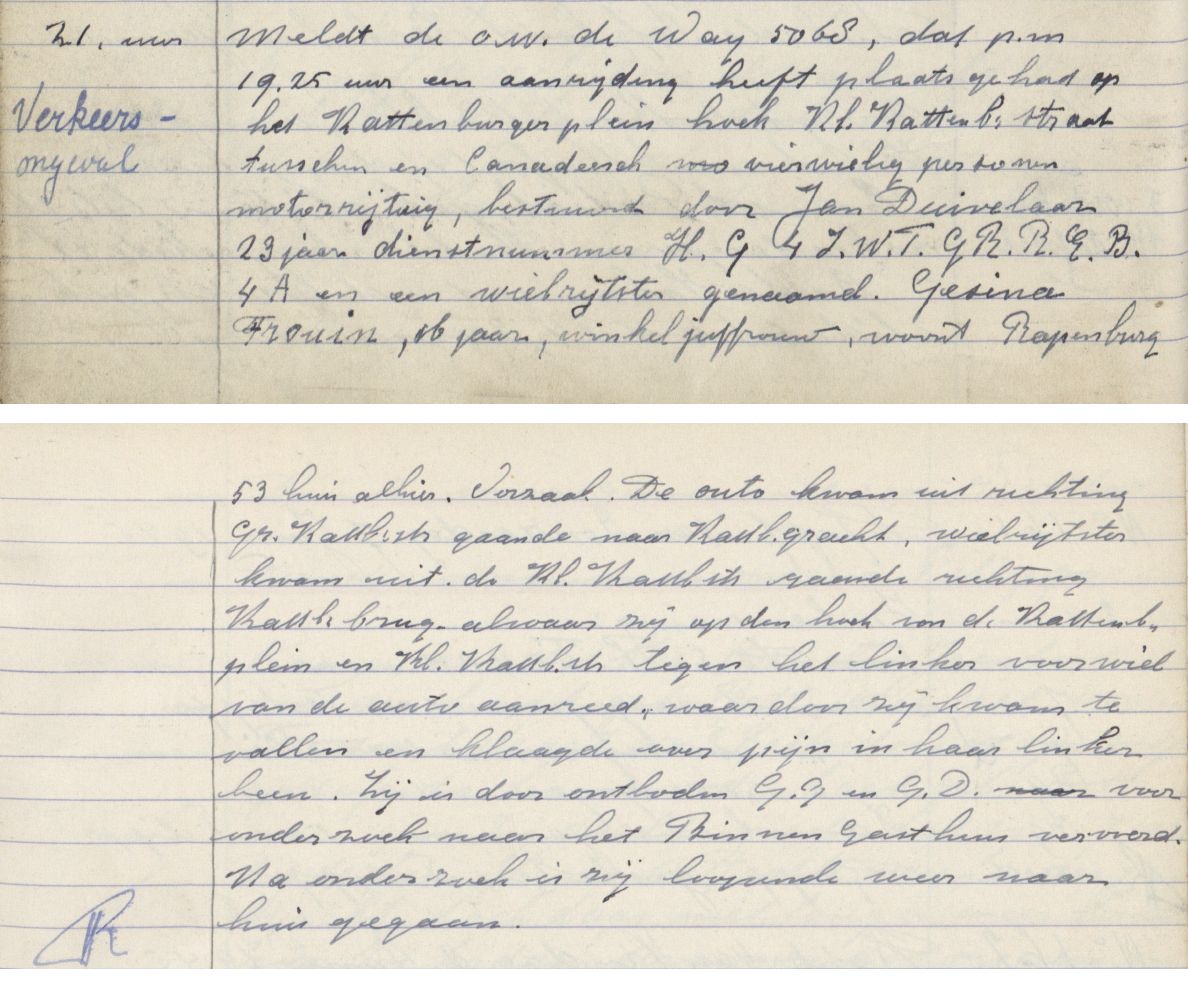 21. uur
Verkeers-
ongeval
Meldt de o.w. de Way 5068, dat p.m
19.25 uur een aanrijding heeft plaats gehad op
het Kattenburgerplein hoek Kl. Kattenb. straat
tusschen en Canadeesch vierwielig personen
motorrijtuig, bestuurd door Jan Duivelaar
23 jaar dienstnummer H. G 4 I.W.T. GR. R. E. B.
4 A en een wielrijdster genaamd. Gesina
Frouin, 16 jaar, winkeljuffrouw, woont Rapenburg
53 huis alhier. Oorzaak. De auto kwam uit richting
Gr. Kattb.str gaande naar Kattb.gracht, wielrijdster
kwam uit de Kl. Kattb.str gaande richting
Kattb. brug. alwaar zij op den hoek van d. Kattenb.
plein en Kl. Kattb.str tegen het linker voorwiel
van de auto aanreed, waardoor zij kwam te
vallen en klaagde over pijn in haar linker
been. Zij is door ontboden G.G en G.D. naar voor
onderzoek naar het Binnen Gasthuis vervoerd.
Na onderzoek is zij loopende weer naar
huis gegaan.